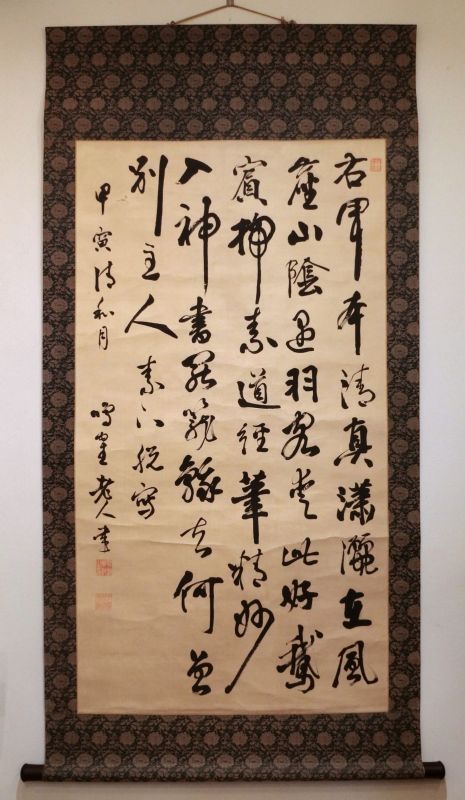 右軍本清真瀟灑在風
塵山陰遇羽客愛此好鵝
賓掃素道經筆精妙
入神書罷籠鵝去何曽
別主人 素下脱寫
甲寅清和月 鳴隺老人書